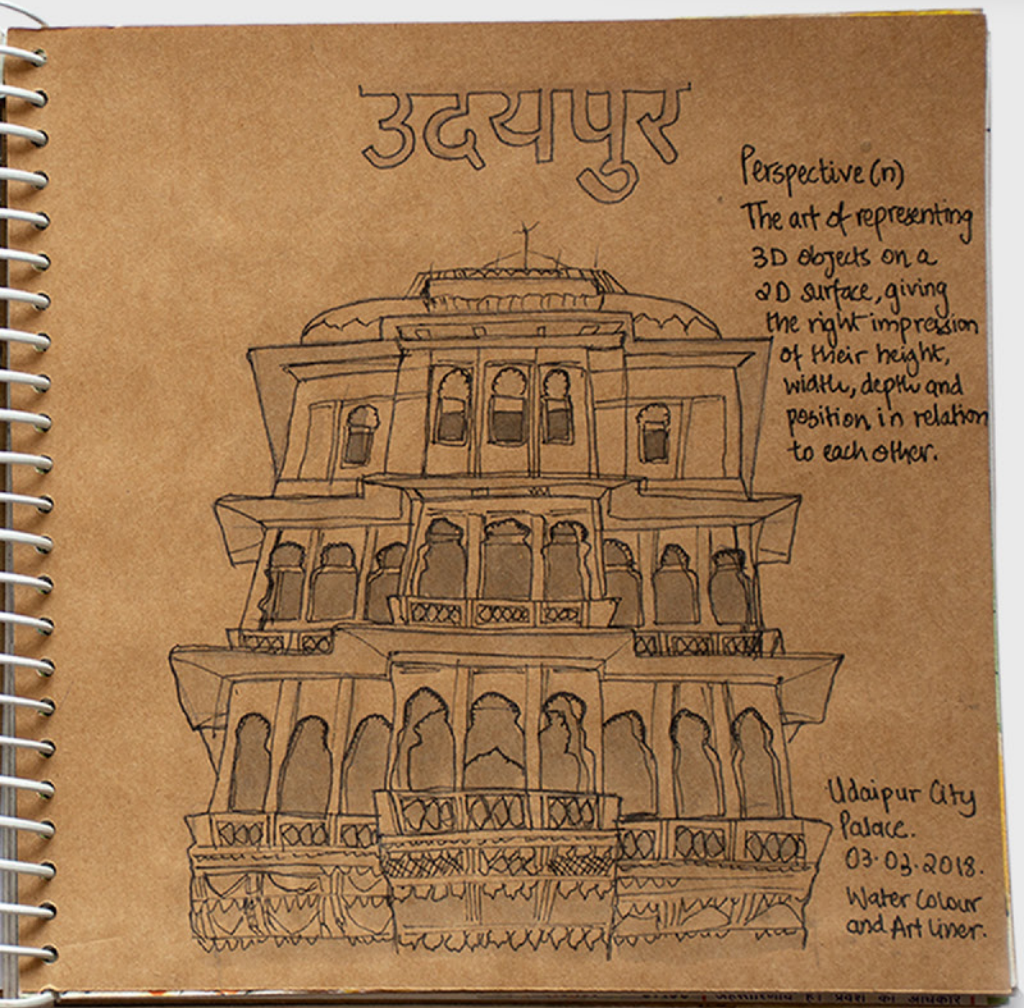 उदयपुर
Perspective (n)
The art of representing
3D objects on a
2D surface, giving
the right impression
of their height,
width, depth and
position in relation
to each other.
Udaipur City
Palace.
03.03.2018.
Water Colour
and Art Liner.